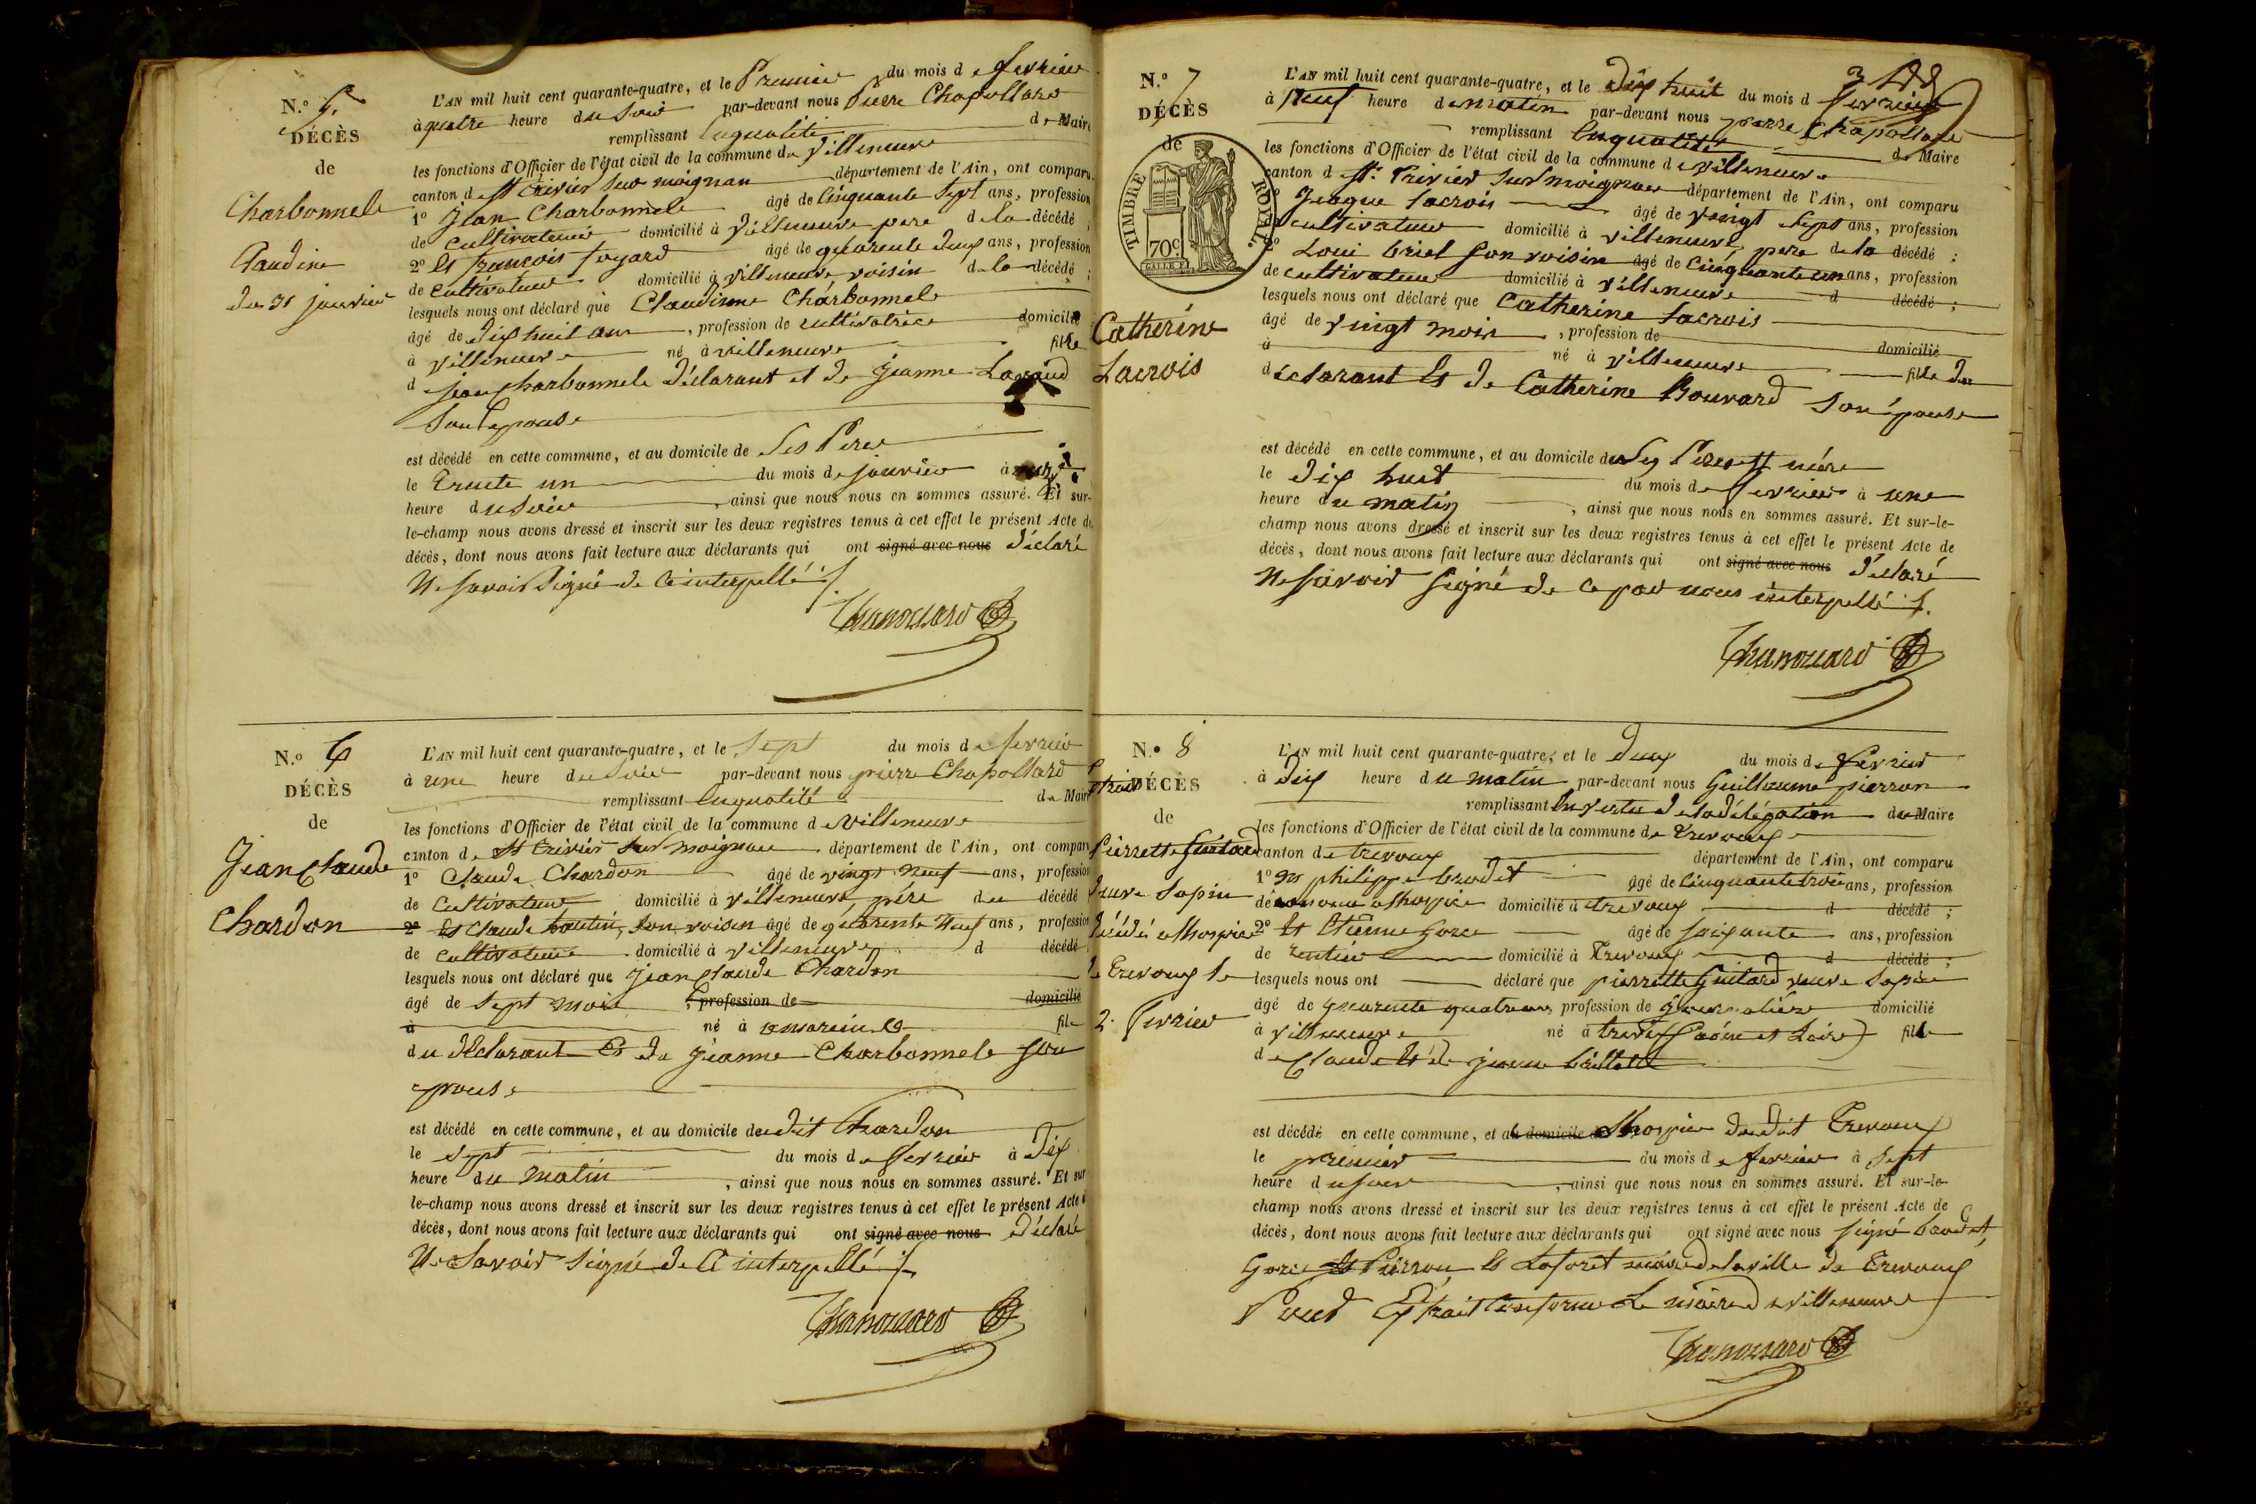 N.° 5
DÉCÈS
de
Charbonnele
Claudine
du 31 janvier
L'AN mil huit cent quarante-quatre, et le Premier du mois de fevrier
à quatre heure du Soir par-devant nous Pierre Chapollard
remplissant Enqualité de Maire
les fonctions d'Officier de l'état civil de la commune de Villeneuve
canton de St trivier Sur moignan département de l'Ain, ont comparu
1° Jean Charbonnele âgé de Cinquante Sept ans, profession
de Cultivateur domicilié à Villeneuve pere de la décédé ;
2° Et francois foyard âgé de quarente deux ans, profession
de Cultivateur domicilié à Villeneuve voisin de la décédé ;
lesquels nous ont déclaré que Claudinne Charbonnele
âgé de Dix huit ans, profession de cultivatrice domicilié
à Villeneuve né à villeneuve fille
d jean Charbonnele Déclarant et de Jeanne
Son Epouse
est décédé en cette commune, et au domicile de Ses Pere
le Trente un du mois de janvier à
heure du Soir, ainsi que nous nous en sommes assuré. Et sur-
le-champ nous avons dressé et inscrit sur les deux registres tenus à cet effet le présent Acte de
décès, dont nous avons fait lecture aux déclarants qui ont signé avec nous Déclaré
Ne Savoir Signé de Ce interpellé
N.° 6
DÉCÈS
de
Jean Claude
Chardon
L'AN mil huit cent quarante-quatre, et le Sept du mois de fevrier
à une heure du Soir par-devant nous pierre Chapollard
remplissant Enqualité de Maire
les fonctions d'Officier de l'état civil de la commune de Villeneuve
canton de St trivier Sur moignan département de l'Ain, ont comparu
1° Claude Chardon âgé de vingt neuf ans, profession
de Cultivateur domicilié à Villeneuve, pére du décédé
2° Et Claude, Son voisin âgé de quarente Neuf ans, profession
de cultivateur domicilié à Villeneuve d décédé
lesquels nous ont déclaré que Jean Claude Chardon
âgé de Sept mois, profession de domicilié
à né à fils
du Déclarant Et de Jeanne Charbonnele Son
epouse
est décédé en cette commune, et au domicile dudit Chardon
le Sept du mois de fevrier à Dix
heure du matin, ainsi que nous nous en sommes assuré. Et sur
le-champ nous avons dressé et inscrit sur les deux registres tenus à cet effet le présent Acte d
décès, dont nous avons fait lecture aux déclarants qui ont signé avec nous Déclaré
Ne Savoir Signé de Ce interpellé
N.° 7
DÉCÈS
de
TIMBRE ROYAL
70c
Catherine
Lacrois
L'AN mil huit cent quarante-quatre, et le Dix huit du mois d fevrier
à Neuf heure du matin par-devant nous pierre Chapollard
remplissant Enqualité de Maire
les fonctions d'Officier de l'état civil de la commune de Villeneuve
canton d St. Trivier Sur moignan département de l'Ain, ont comparu
1° Jeaque Lacrois âgé de vingt Sept ans, profession
de cultivateur domicilié à villeneuve, pere de la décédé ;
2° Loui briel Son voisin âgé de Cinquante un ans, profession
de cultivateur domicilié à Villeneuve d décédé ;
lesquels nous ont déclaré que Catherine Lacrois
âgé de vingt mois, profession de domicilié
à né à Villeneuve fille du
declarant Et de Catherine Bouvard Son épouse
est décédé en cette commune, et au domicile de Ses Pere et mére
le Dix huit du mois de fevrier à une
heure du matin, ainsi que nous nous en sommes assuré. Et sur-le-
champ nous avons dressé et inscrit sur les deux registres tenus à cet effet le présent Acte de
décès, dont nous avons fait lecture aux déclarants qui ont signé avec nous Déclaré
Ne Savoir Signé de Ce par nous interpellé
N.° 8
DÉCÈS
de
Pierrette Guitard
veuve Sapin
Décédé a l'hospice
de Trevoux le
2. fevrier
L'AN mil huit cent quarante-quatre, et le Deux du mois de fevrier
à Dix heure du matin par-devant nous Guillaume pierron
remplissant En vertu de la délégation du Maire
les fonctions d'Officier de l'état civil de la commune de Trevoux
canton de trevoux département de l'Ain, ont comparu
1° philippe brodet âgé de Cinquante trois ans, profession
d'économe a l'hospice domicilié à trevoux d décédé ;
2° Et Etienne Gorce âgé de soixante ans, profession
de rentier domicilié à Trevoux d décédé ;
lesquels nous ont déclaré que pierrette Guitard veuve Sapin
âgé de quarente quatre ans, profession de journalière domicilié
à Villeneuve né à (Saône et Loire) fille
de Claude Et de jeanne
est décédé en cette commune, et au domicile de l'hospice du dit Trevoux
le premier du mois de fevrier à Sept
heure du soir, ainsi que nous nous en sommes assuré. Et sur-le-
champ nous avons dressé et inscrit sur les deux registres tenus à cet effet le présent Acte de
décès, dont nous avons fait lecture aux déclarants qui ont signé avec nous Signé brodet,
Gorce Et Pierron, Et Laforet maire de la ville de Trevoux
Pour Extrait Conforme Le maire de Villeneuve